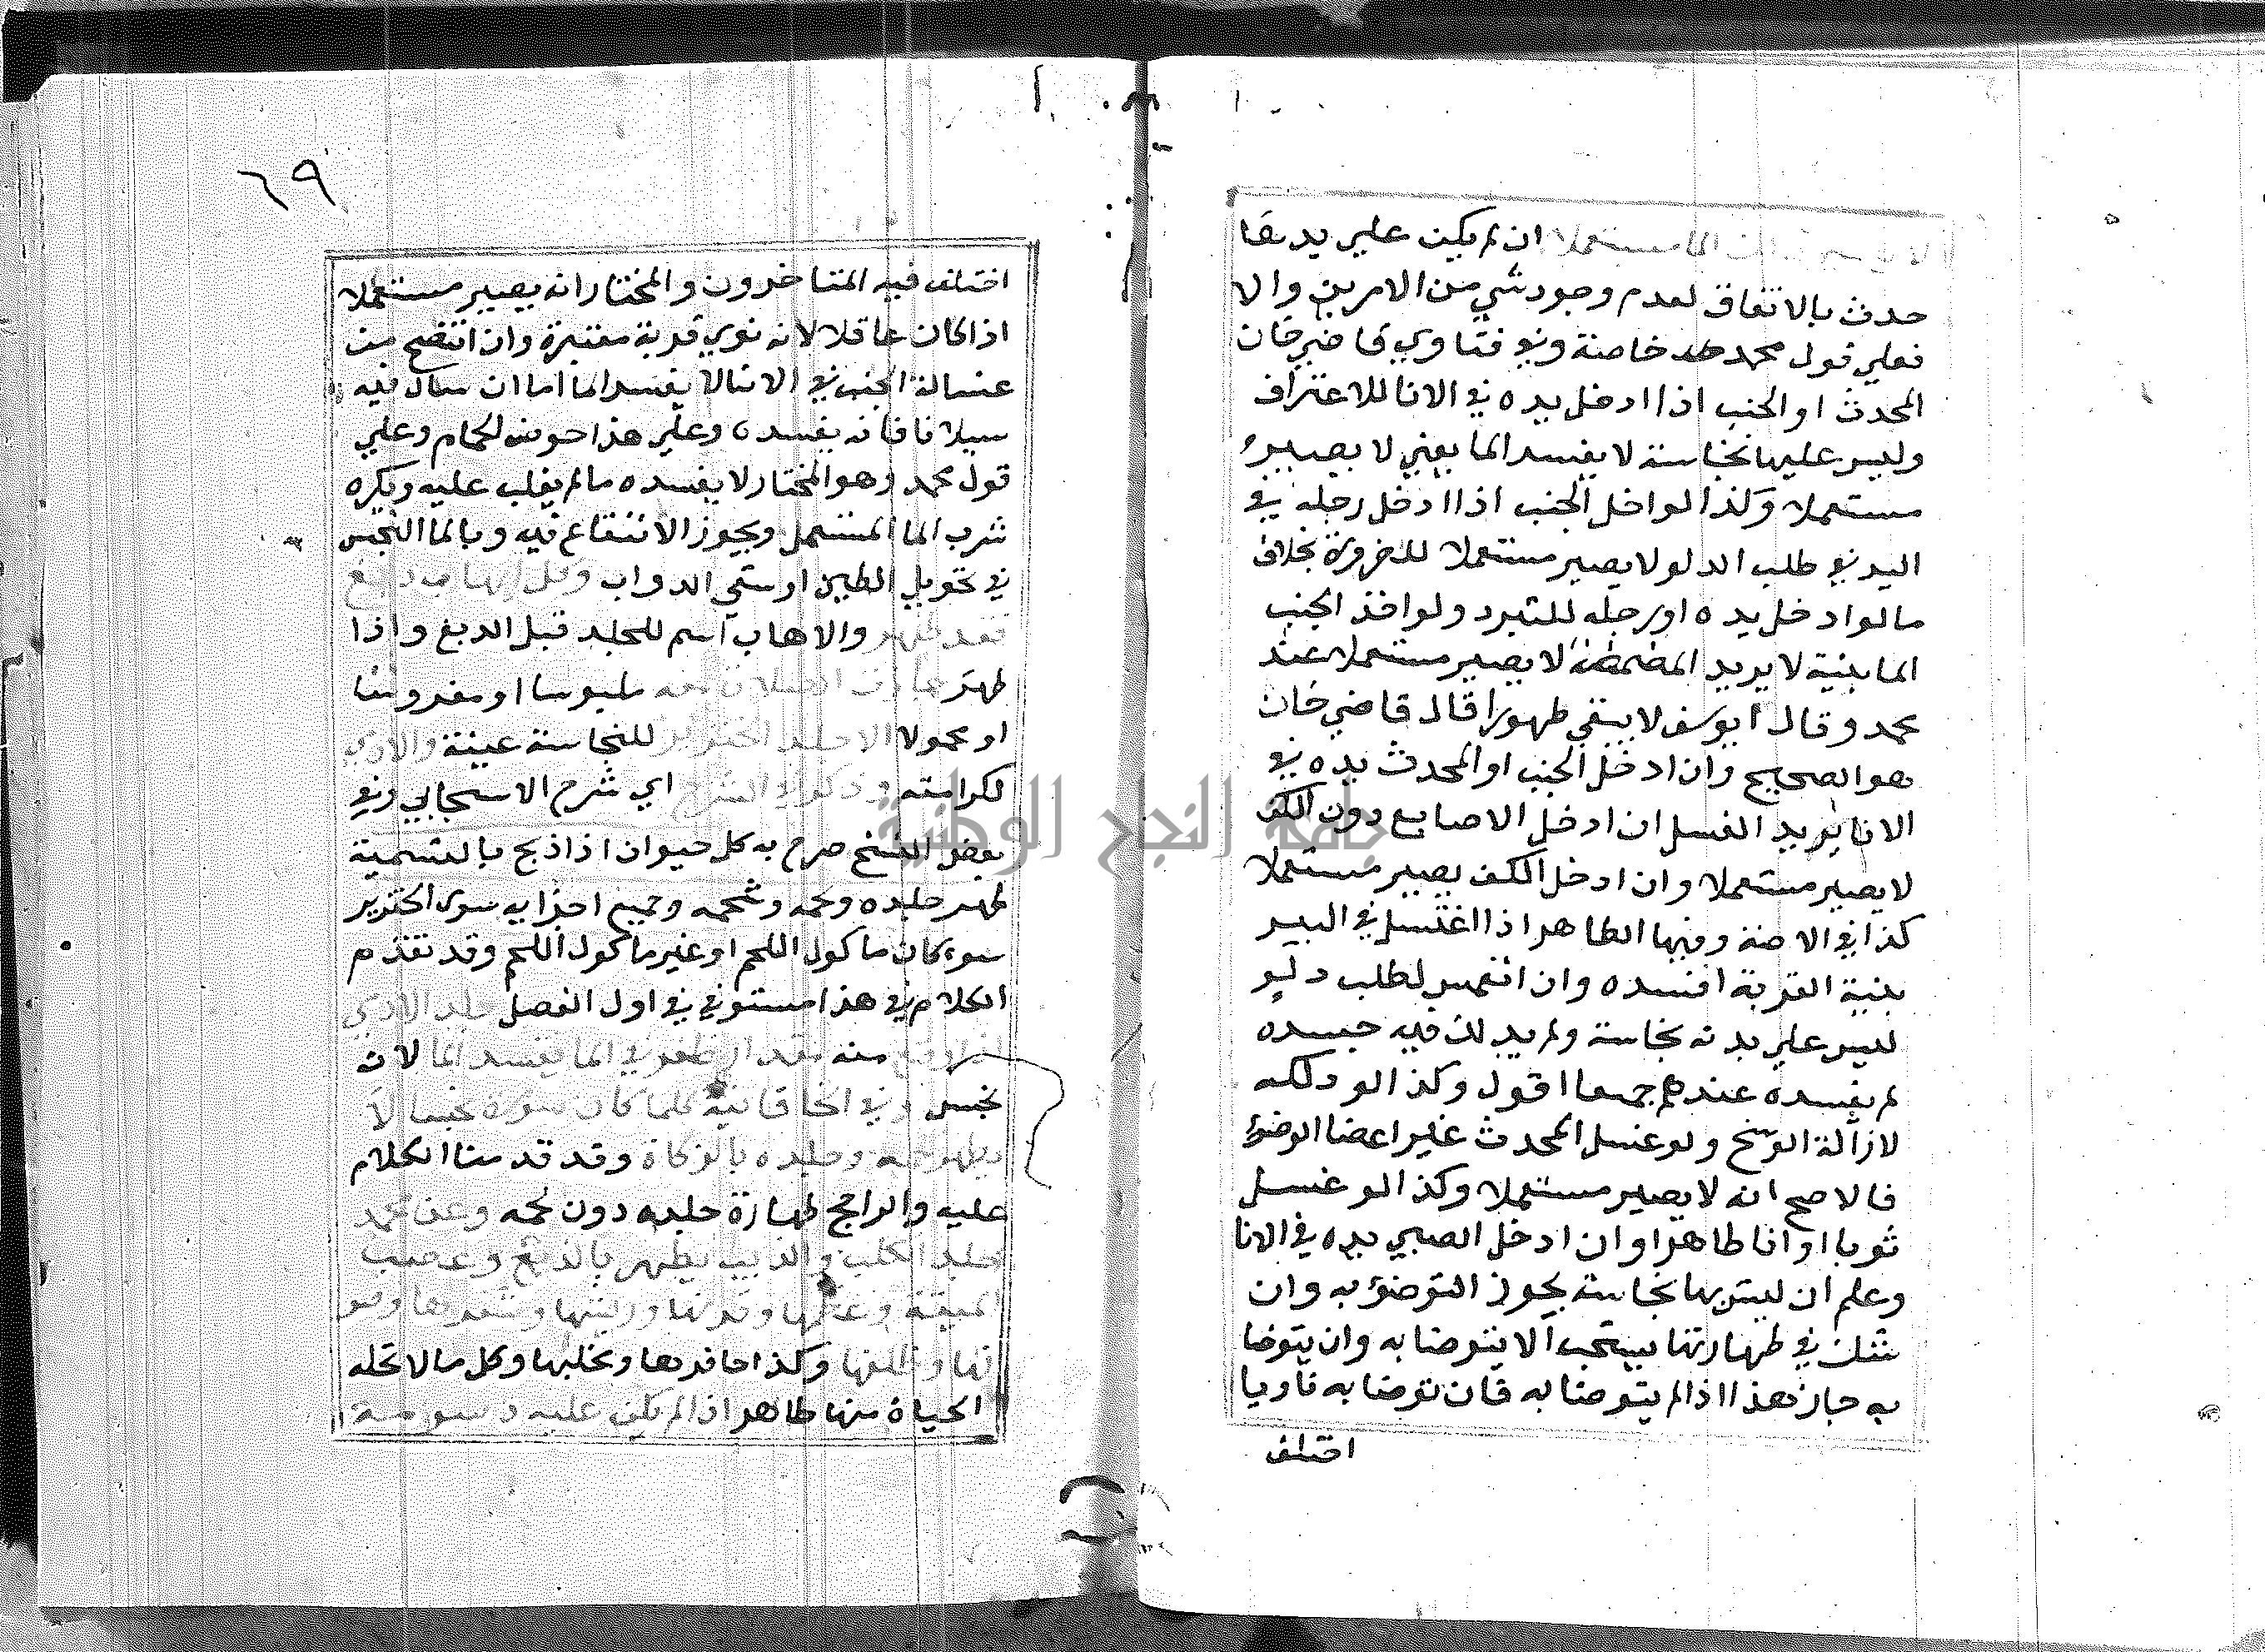 الما مستعملا ان لم يكن علي يدها
حدث بالاتفاق لعدم وجود شي من الامرين والا
فعلي قول محمد خاصة وفي فتاوي قاضي خان
المحدث او الجنب اذا ادخل يده في الانا للاغتراف
وليس عليها نجاسة لا يفسد الما يعني لا يصير
مستعملا وكذا لو ادخل الجنب اذا ادخل رجله في
البير في طلب الدلو لا يصير مستعملا للضرورة بخلاف
ما لو ادخل يده او رجله للتبرد ولو اخذ الجنب
الما بفيه لا يريد المضمضة لا يصير مستعملا عند
محمد وقال ابو يوسف لا يبقي طهورا قال قاضي خان
هو الصحيح وان ادخل الجنب او المحدث يده في
الانا يريد الغسل ان ادخل الاصابع دون الكف
لا يصير مستعملا وان ادخل الكف يصير مستعملا
كذا في الاصنة وفيها الطاهر اذا اغتسل في البير
بنية القربة افسده وان انغمس لطلب دلو
ليس علي بدنه نجاسة ولم يدلك فيه جسده
لم يفسده عندهم جميعا اقول وكذا لو دلكه
لازالة الوسخ ولو غسل المحدث غير اعضا الوضؤ
فالاصح انه لا يصير مستعملا وكذا لو غسل
ثوبا او انا طاهرا وان ادخل الصبي يده في الانا
وعلم ان ليس بها نجاسة يجوز التوضؤ به وان
شك في طهارتها يستحب الا يتوضا به وان يتوضا
به جاز هذا اذا لم يتوضا به فان توضا به ناويا
اختلف
٦٩
اختلف فيه المتاخرون والمختار انه يصير مستعملا
اذا كان عاقلا لانه نوي قربة معتبرة وان انتضح من
غسالة الجنب في الانا لا يفسد الما اما ان سال فيه
سيلانا فانه يفسده وعلي هذا حوض الحمام وعلي
قول محمد وهو المختار لا يفسده ما لم يغلب عليه ويكره
شرب الما المستعمل ويجوز الانتفاع فيه وبالما النجس
في تحويل الطين او سقي الدواب وكل اهاب دبغ
فقد طهر والاهاب اسم للجلد قبل الدبغ واذا
طهر جازت الصلاة معه ملبوسا او مفروشا
او محمولا الا جلد الخنزير للنجاسة عينة والادمي
لكرامته وذكر في الشرح اي شرح الاسبيجابي وفي
بعض النسخ صرح به كل حيوان اذا ذبح بالتسمية
طهر جلده ولحمه وشحمه وجميع اجزايه سوي الخنزير
سوا كان ماكول اللحم او غير ماكول اللحم وقد تقدم
الكلام في هذا مستوفي في اول الفصل جلد الادمي
اذا وقع منه مقدار ظفر في الما يفسد الما لانه
نجس وفي الخاقانية كلما كان سوره نجسا لا
يطهر لحمه وجلده بالزكاة وقد قدمنا الكلام
عليه والراجح طهارة جلده دون لحمه وعن محمد
جلد الكلب والذيب يطهر بالدبغ وعصب
الميتة وعظمها وقرنها وريشها وشعرها وصو
فها وظلفها وكذا حافرها ومخلبها وكل ما لا تحله
الحياة منها طاهر اذا لم يكن عليه دسومة
جامعة النجاح الوطنية